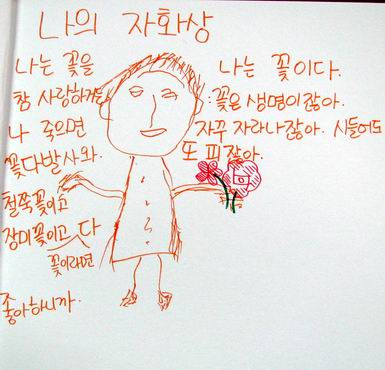 나의 자화상
나는 꽃을
참 사랑하거든
나 죽으면
꽃다발 사와.
철쭉꽃이고
장미꽃이고 다
꽃이라면
좋아하니까.
나는 꽃이다.
꽃은 생명이잖아.
자꾸 자라나잖아. 시들어도
또 피잖아.